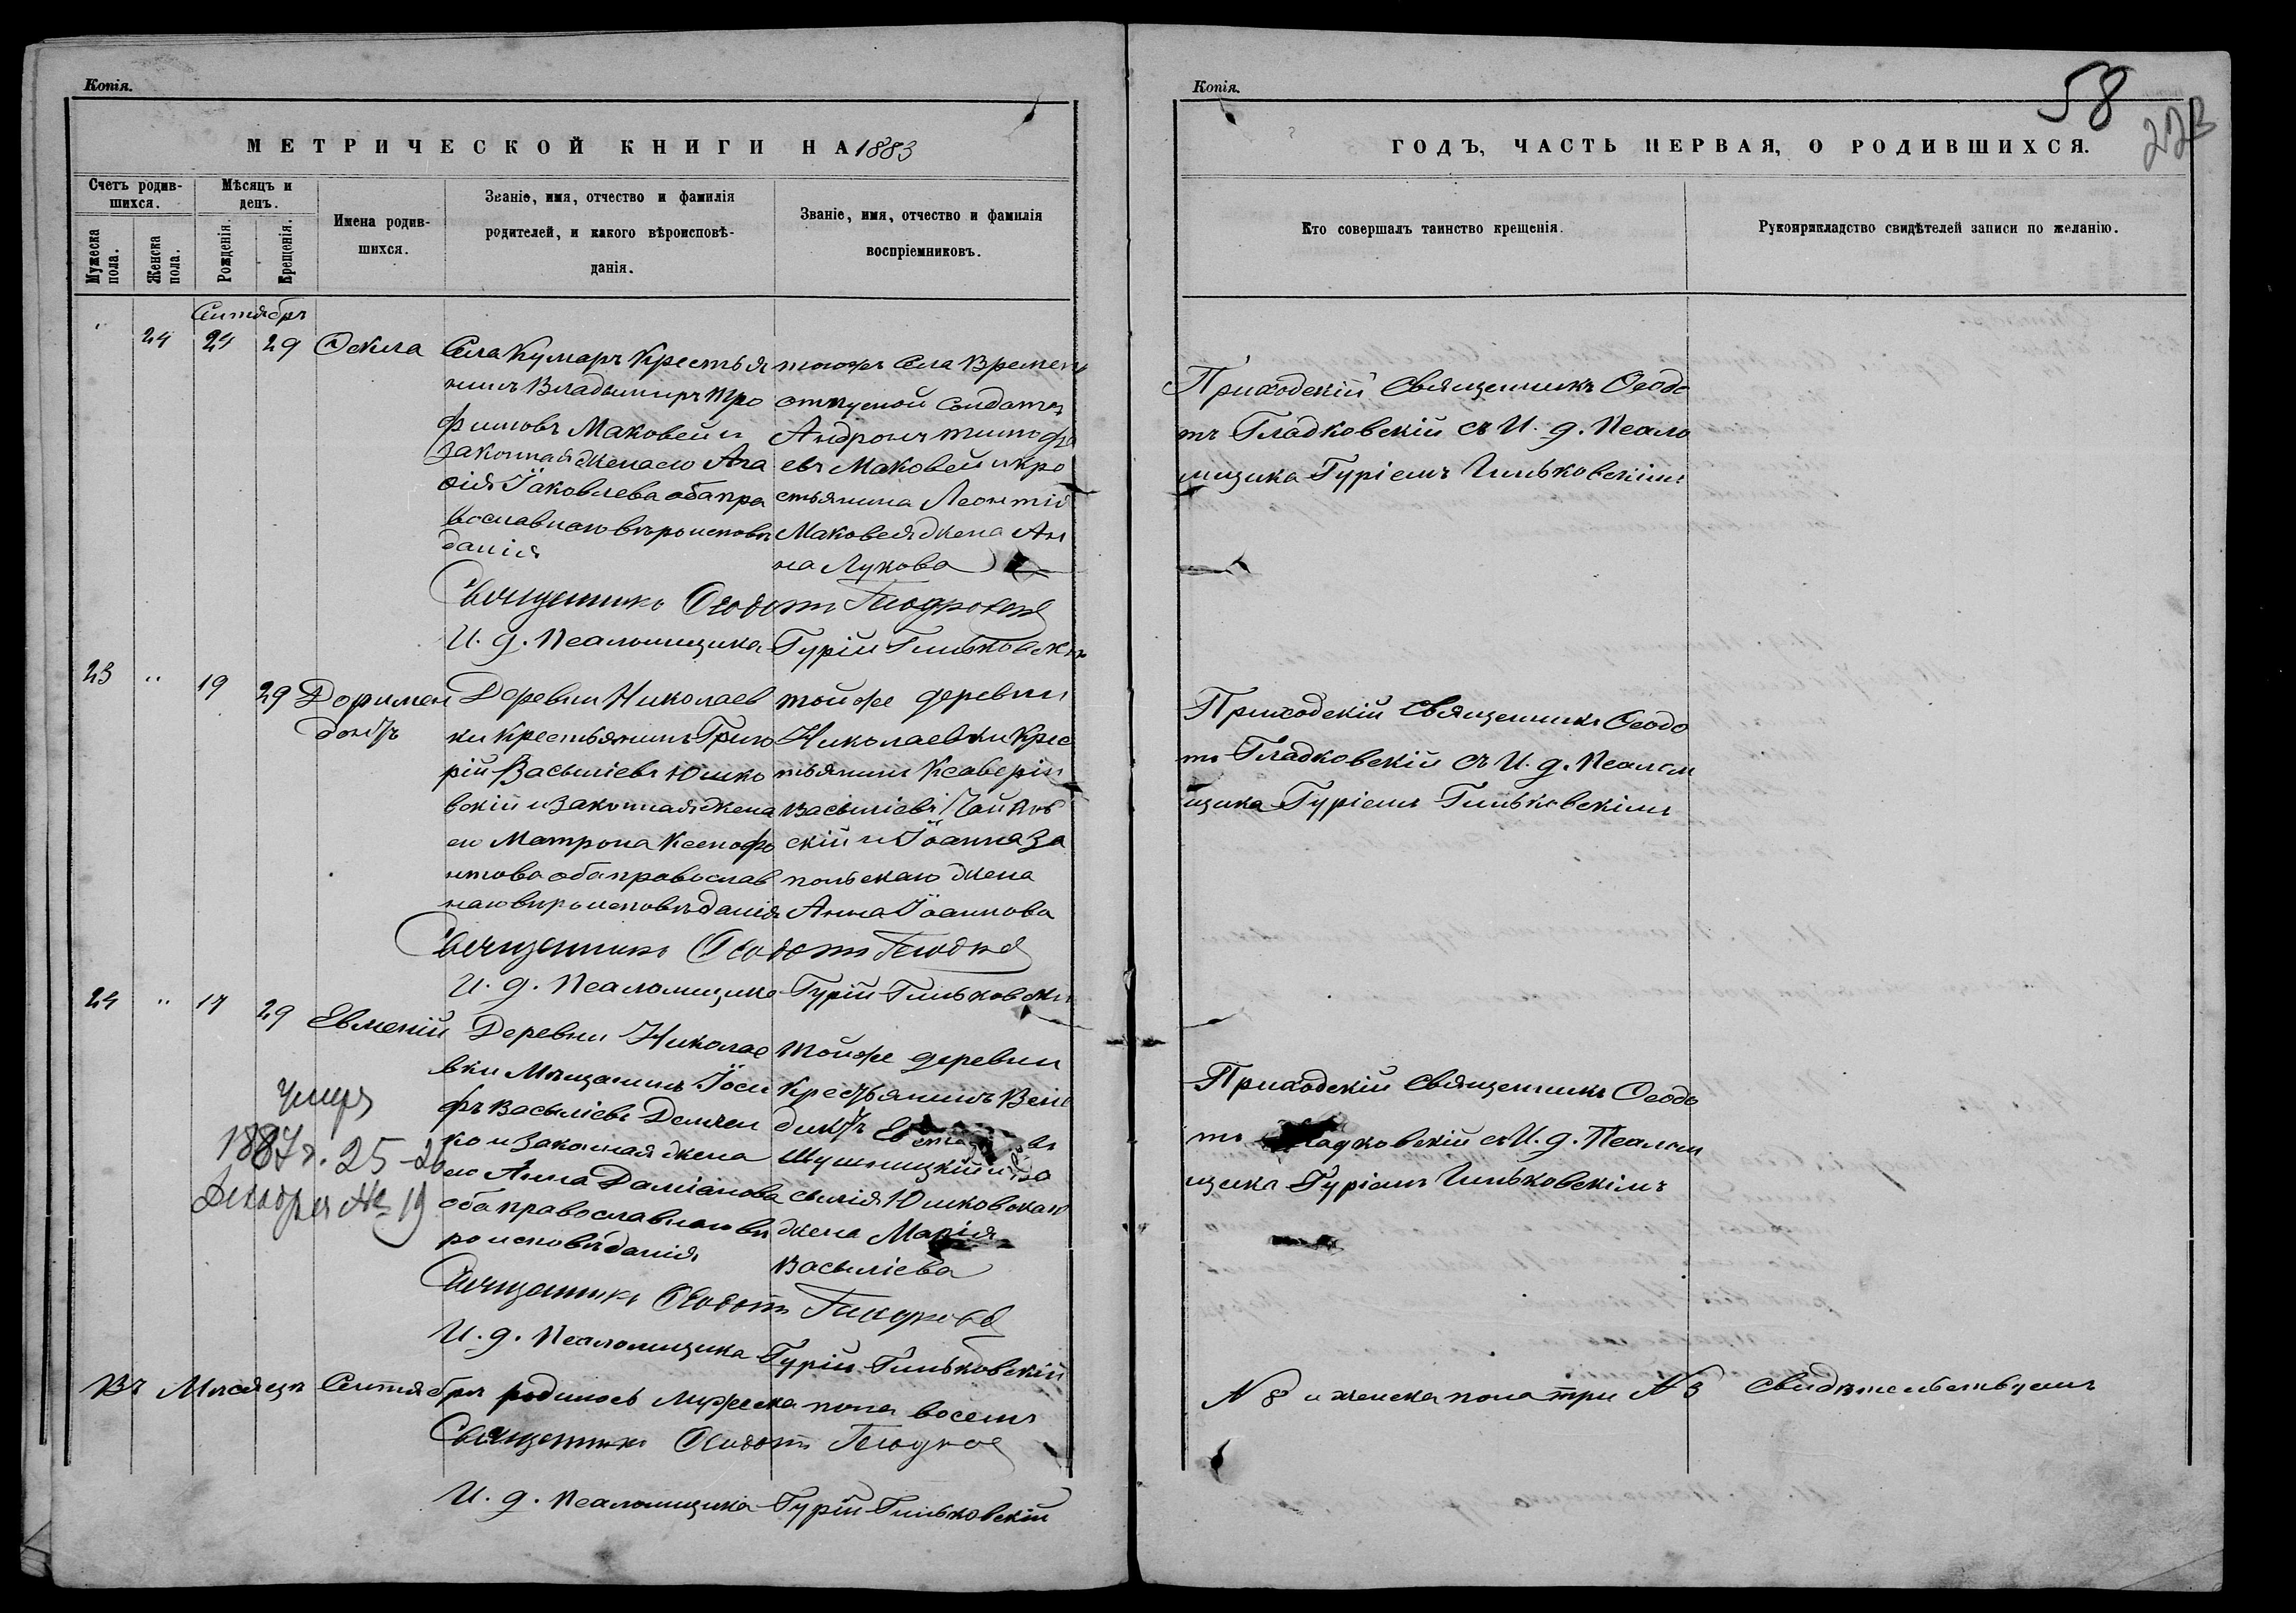 Копія.
МЕТРИЧЕСКОЙ КНИГИ НА 1883
Счетъ родив-
шихся.
Мѣсяцъ и
день.
Мужеска
пола.
Женска
пола.
Рожденія.
Крещенія.
Имена родив-
шихся.
Званіе, имя, отчество и фамилія
родителей, и какого вѣроисповѣ-
данія.
Званіе, имя, отчество и фамилія
воспріемниковъ.
Сентябрь
24 24 29 Ѳекла
Села Кумаръ Крестья
нинъ Владымиръ Тро
фимовъ Маковей и
законная жена его Ага
ѳія Іаковлева оба пра
вославнаго вѣроисповѣ
данія
тогожъ Села Времен
отпускной Солдатъ
Андроникъ Тимофѣ
евъ Маковей и кре
стьянина Леонтія
Маковея жена Ан
на Лукова
Священникъ Ѳеодотъ Гладковскій
И. д. Псаломщика Гурій Гиньковскій
23 " 19 29 Доримен
донтъ
Деревни Николаев
ки Крестьянинъ Григо
рій Васыліевъ Юшко
вскій и законная жена
его Матрона Ксенофо
нтова оба православ
наго вѣроисповѣданія
тойже деревни
Николаевки Крес
тьянинъ Ксаверій
Васыліевъ Чайков
скій и Іоанна За
польскаго жена
Анна Іоаннова
Священникъ Ѳеодотъ Гладков
И. д. Псаломщика Гурій Гиньковскій
24 " 17 29 Евменій
Деревни Николае
вки Мѣщанинъ Іоси
фъ Васыліевъ Демчен
ко и законная жена
его Анна Даміанова
оба православнаго вѣ
роисповѣданія
тойже деревни
Крестьянинъ Вене
диктъ
Шушницкій и Ва
сылія Юшковскаго
жена Марія
Васыліева
умеръ
1887 г. 25-26
Декабря № 19
Священникъ Ѳеодотъ Гладковс
И. д. Псаломщика Гурій Гиньковскій
Въ Мѣсяцѣ Сентябрѣ родилось мужеска пола восемь
Священникъ Ѳеодотъ Гладков
И. д. Псаломщика Гурій Гиньковскій
Копія.
58
ГОДЪ, ЧАСТЬ ПЕРВАЯ, О РОДИВШИХСЯ.
Кто совершалъ таинство крещенія.
Рукоприкладство свидѣтелей записи по желанію.
Приходскій Священникъ Ѳеодо
тъ Гладковскій съ И. д. Псало
мщика Гуріемъ Гиньковскимъ
Приходскій Священникъ Ѳеодо
тъ Гладковскій съ И. д. Псалом
щика Гуріемъ Гиньковскимъ
Приходскій Священникъ Ѳеодо
тъ Гладковскій съ И. д. Псалом
щика Гуріемъ Гиньковскимъ
№ 8 и женска пола три № 3 Свидѣтельствуемъ